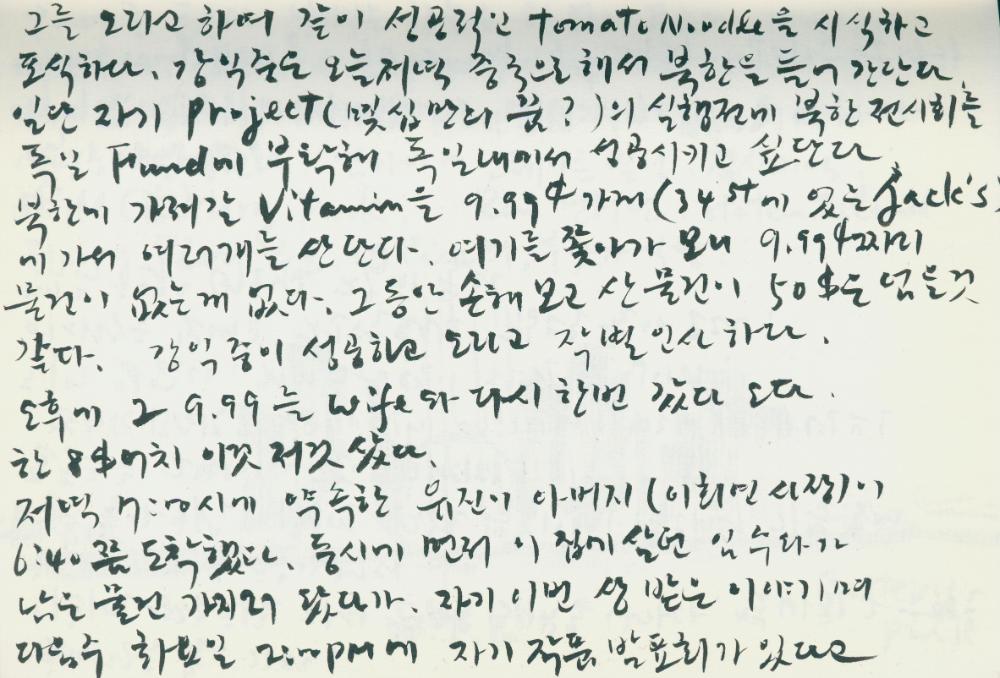 그를 오라고 하여 같이 성공적인 tomato Noodle을 시식하고
포식하다. 강익중은 오늘저녁 중국으로해서 북한을 들어 간단다.
일단 자기 project(몇십만의 꿈?)의 실행전에 북한 전시회를
독일 Fund에 부탁해 독일내에서 성공시키고 싶단다
북한에 가져갈 Vitamin을 9.99¢ 가게(34st에 있는 Jack's)
에 가서 여러개를 산단다. 여기를 쫓아가 보니 9.99¢짜리
물건이 없는게 없다. 그동안 손해 보고 산 물건이 50$은 넘을것
같다. 강익중이 성공하고 오라고 작별인사하다.
오후에 그 9.99를 wife와 다시 한번 갔다 오다.
한 8$어치 이것 저것 샀다
저녁 7:00시에 약속한 유진이 아버지(이회면 시장)이
6:40쯤 도착했다. 동시에 먼저 이 집에 살던 임수라가
남은 물건 가지러 왔다가. 자기 이번 상 받은 이야기며
다음주 화요일 2:00PM에 자기 작품 발표회가 있다고